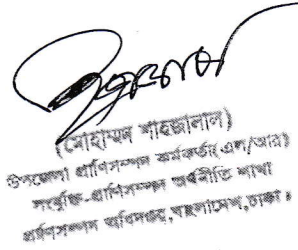 (মোহাম্মদ শাহজালাল)
উপজেলা প্রাণিসম্পদ কর্মকর্তা(এল/আর)
সংযুক্ত-প্রাণিসম্পদ অর্থনীতি শাখা
প্রাণিসম্পদ অধিদপ্তর,বাংলাদেশ,ঢাকা।